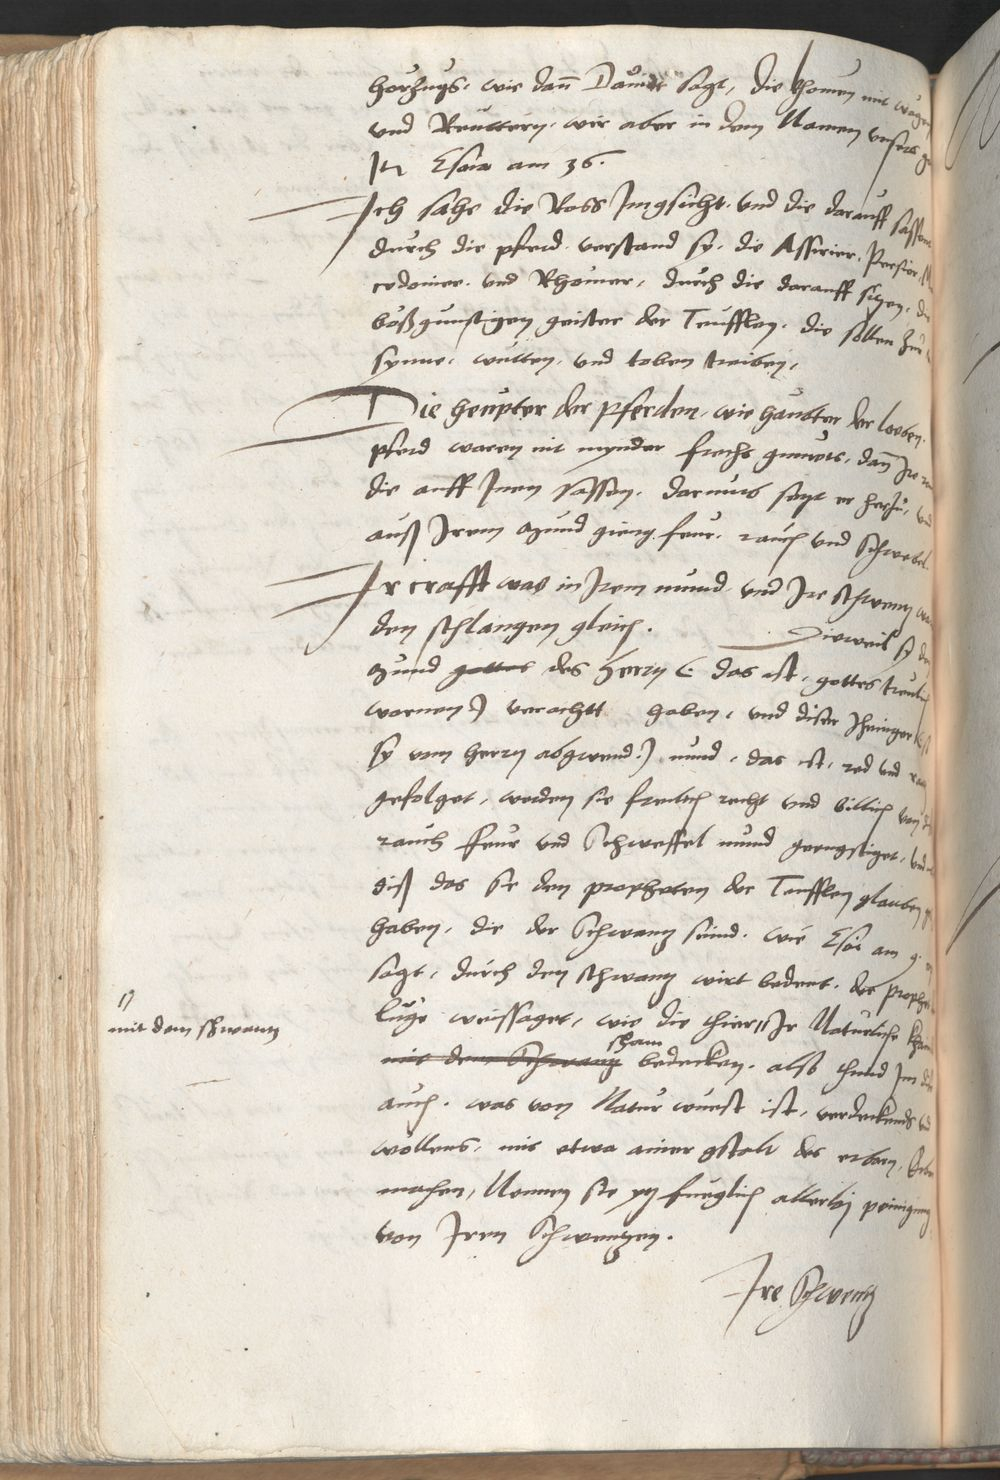 herzugs. wie dann David sagt, die khomen mit wagen
und Reuttern. wir aber in dem Namen unsers
Jt Esaia am 36.
Ich sahe die Ross Jmgsicht. und die darauff sassen
durch die pferd. verstand sy. die Assirier. Persier.
cedonier. und Rhömer, durch die darauff sitzen. die
bößgunstigen geister der Teufflen. die sollen zu
synne. wütten. und toben treiben.
Die heupter der pferden. wie haubter der leoben.
pferd waren nit mynder frechs gmüets, dann Jre
die auff Jnen sassen. darumb setzt er herzu, und
auß Jrem mund gieng feur. rauch und schwebel.
Ir crafft was in Jrem mund. und Jre schwentz
den schlangen gleich. Dieweil sy den
mund gottes des herren ( das ist. gottes treulich
warnen) verachtt haben, und diser Jheniger
sy vom herren abgwend.) mund, das ist, red und
gefolget, werden sie freilich recht und billich von
rauch feur und schweffel mund geengstiget. und
diß das sie den propheten der Teufflen glauben
haben. die der schwantz seind. wie Esai am 9.
sagt, durch den schwantz wirt bedeut. der prophet
luge weissaget, wie die thier " Jr Naturliche
" mit dem schwantz
mit dem schwantz scham bedecken. also thund Jm
auch. was von Natur wüest ist, verdeckends und
wöllens, mit etwa ainer gstalt des erbern,
machen, Nemen sie yetz füeglich allerley peinigung
von Jren schwentzen.
Ire schwentz